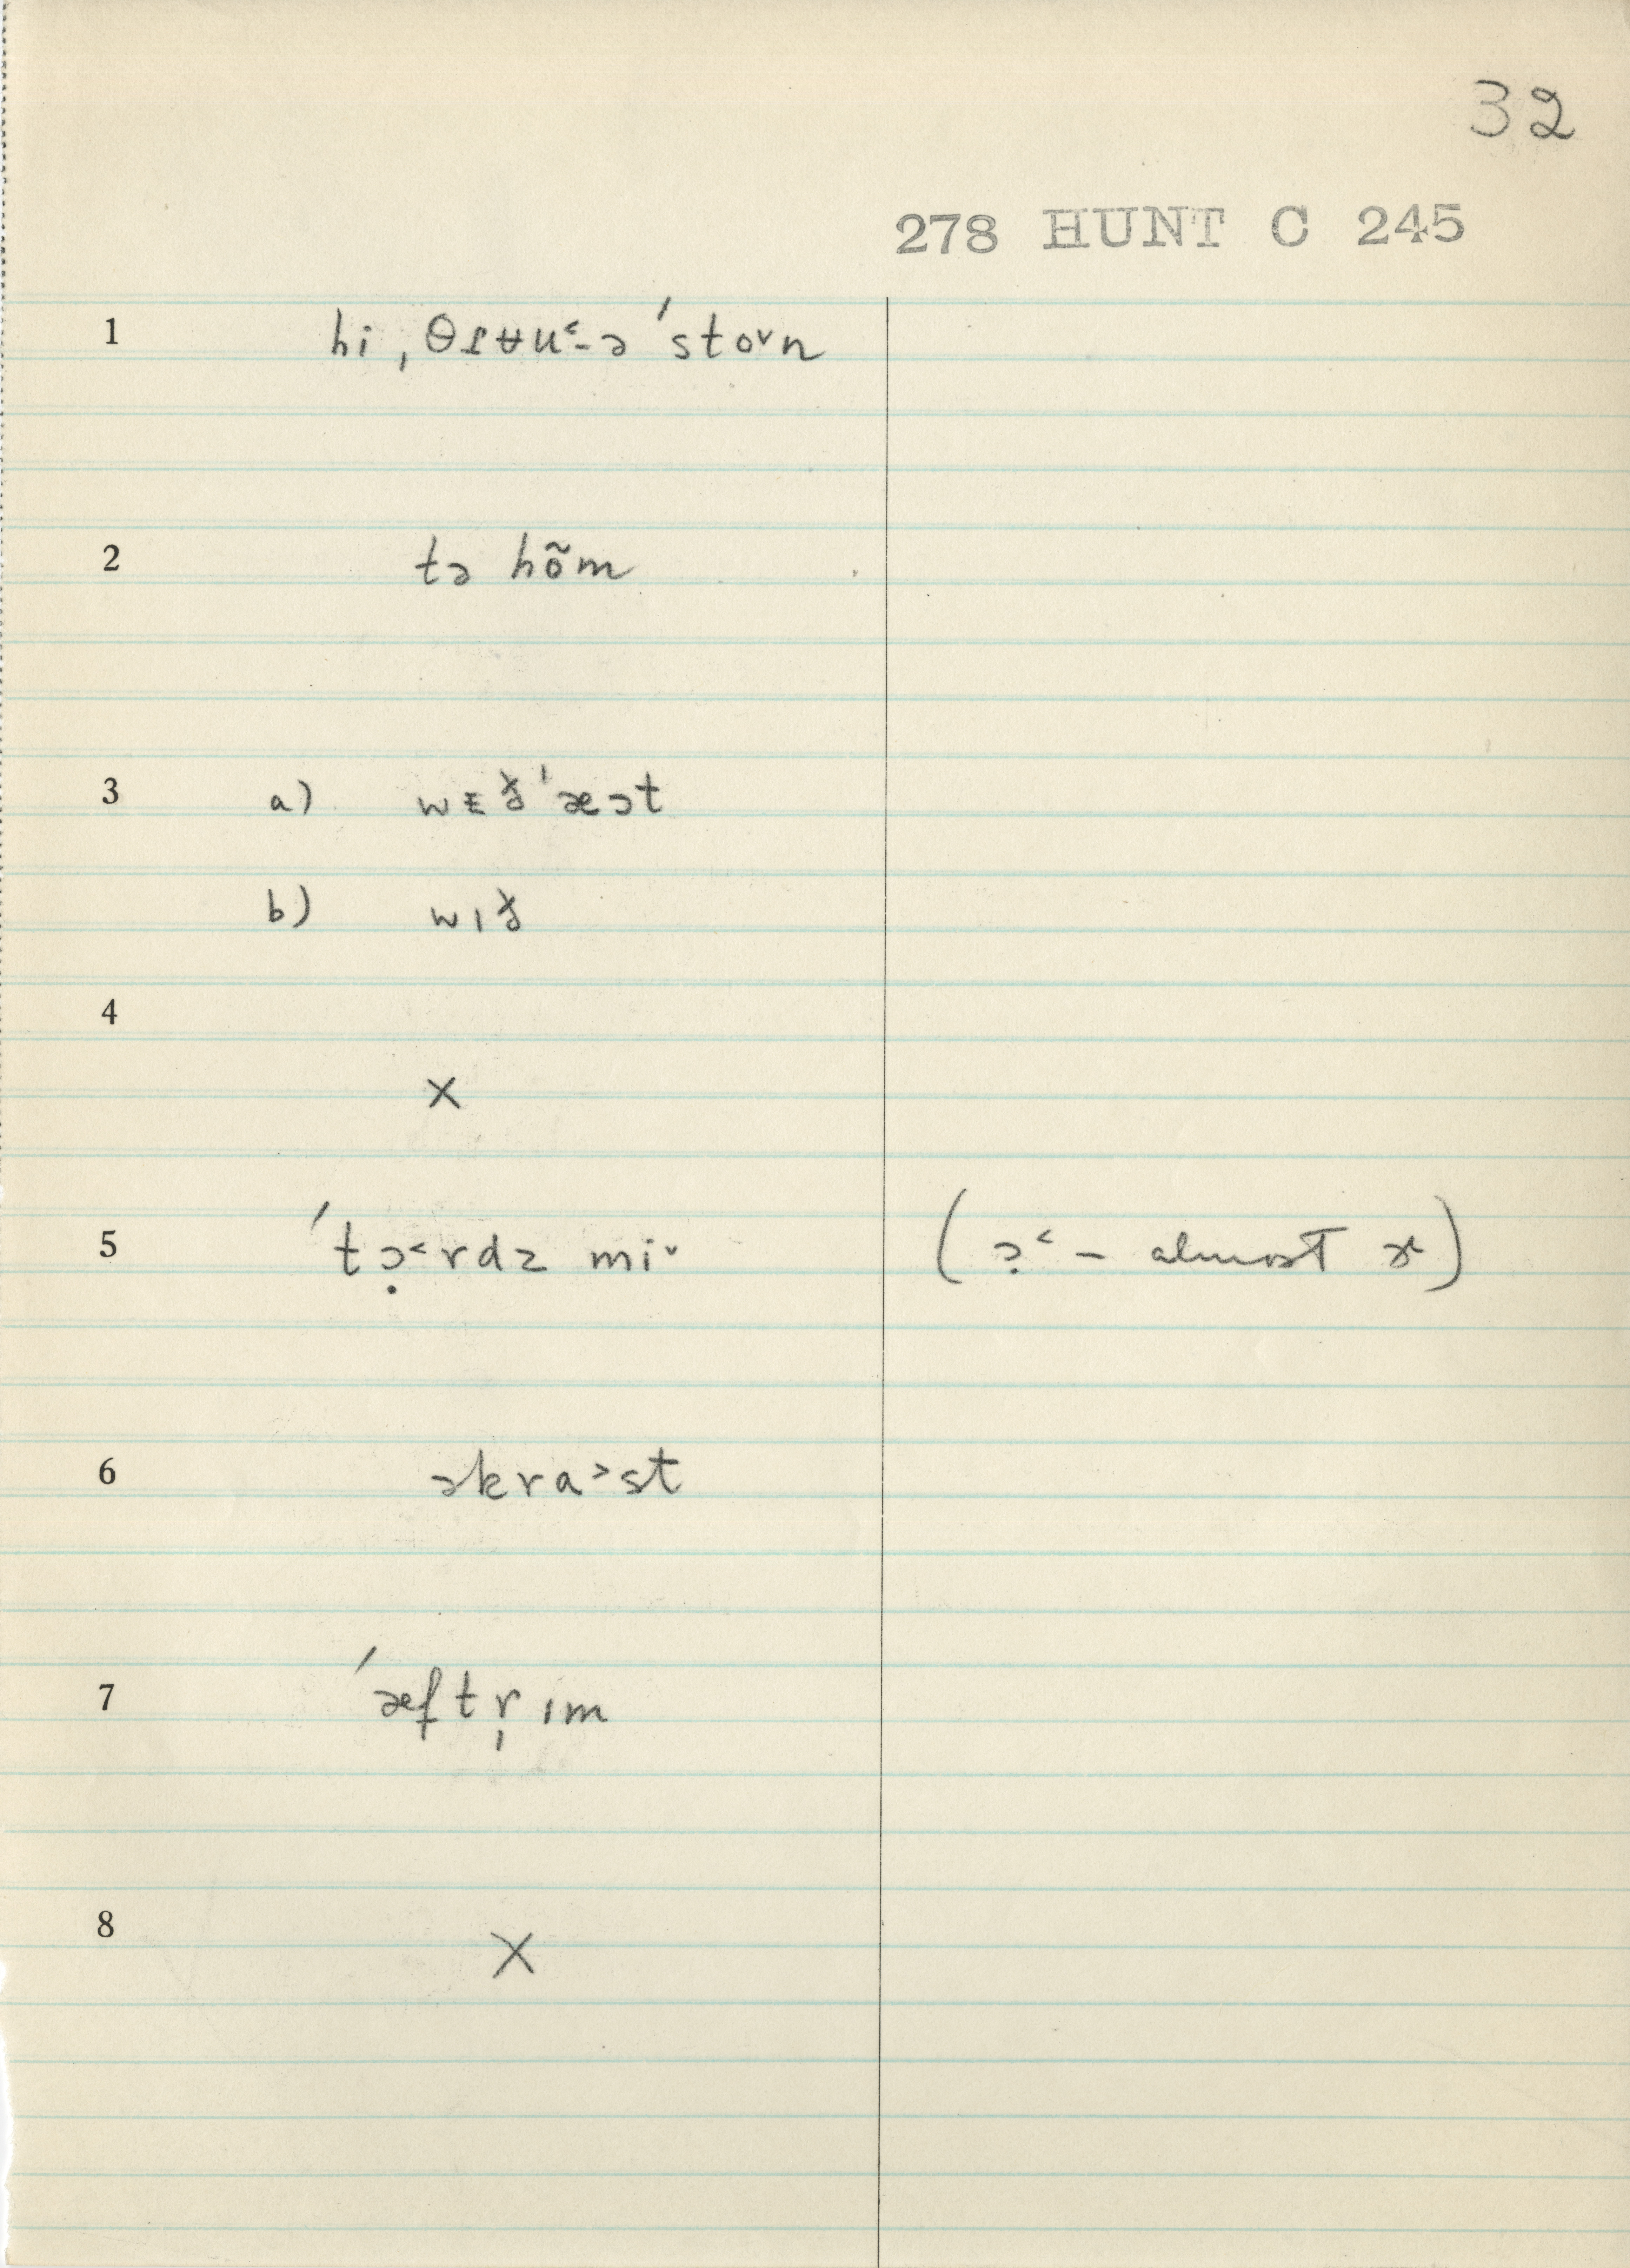 32
278 HUNT C 245
1 hi ˌθɪʉu˂-ə ˈsto˅n
2 tə hõm
3 a) wᵻɟ ˈæət
b) wɪɟ
4
×
5 ˈtə̣˂rdz mi˅ (ə̣˂ – almost ɚ)
6 əkra˃st
7 ˈæftr̩ ɪm
8
×